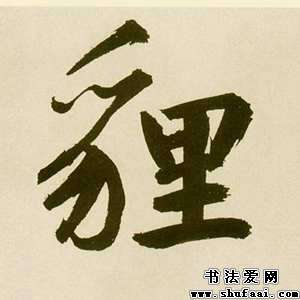 貍
书法爱网
www.shufaai.com